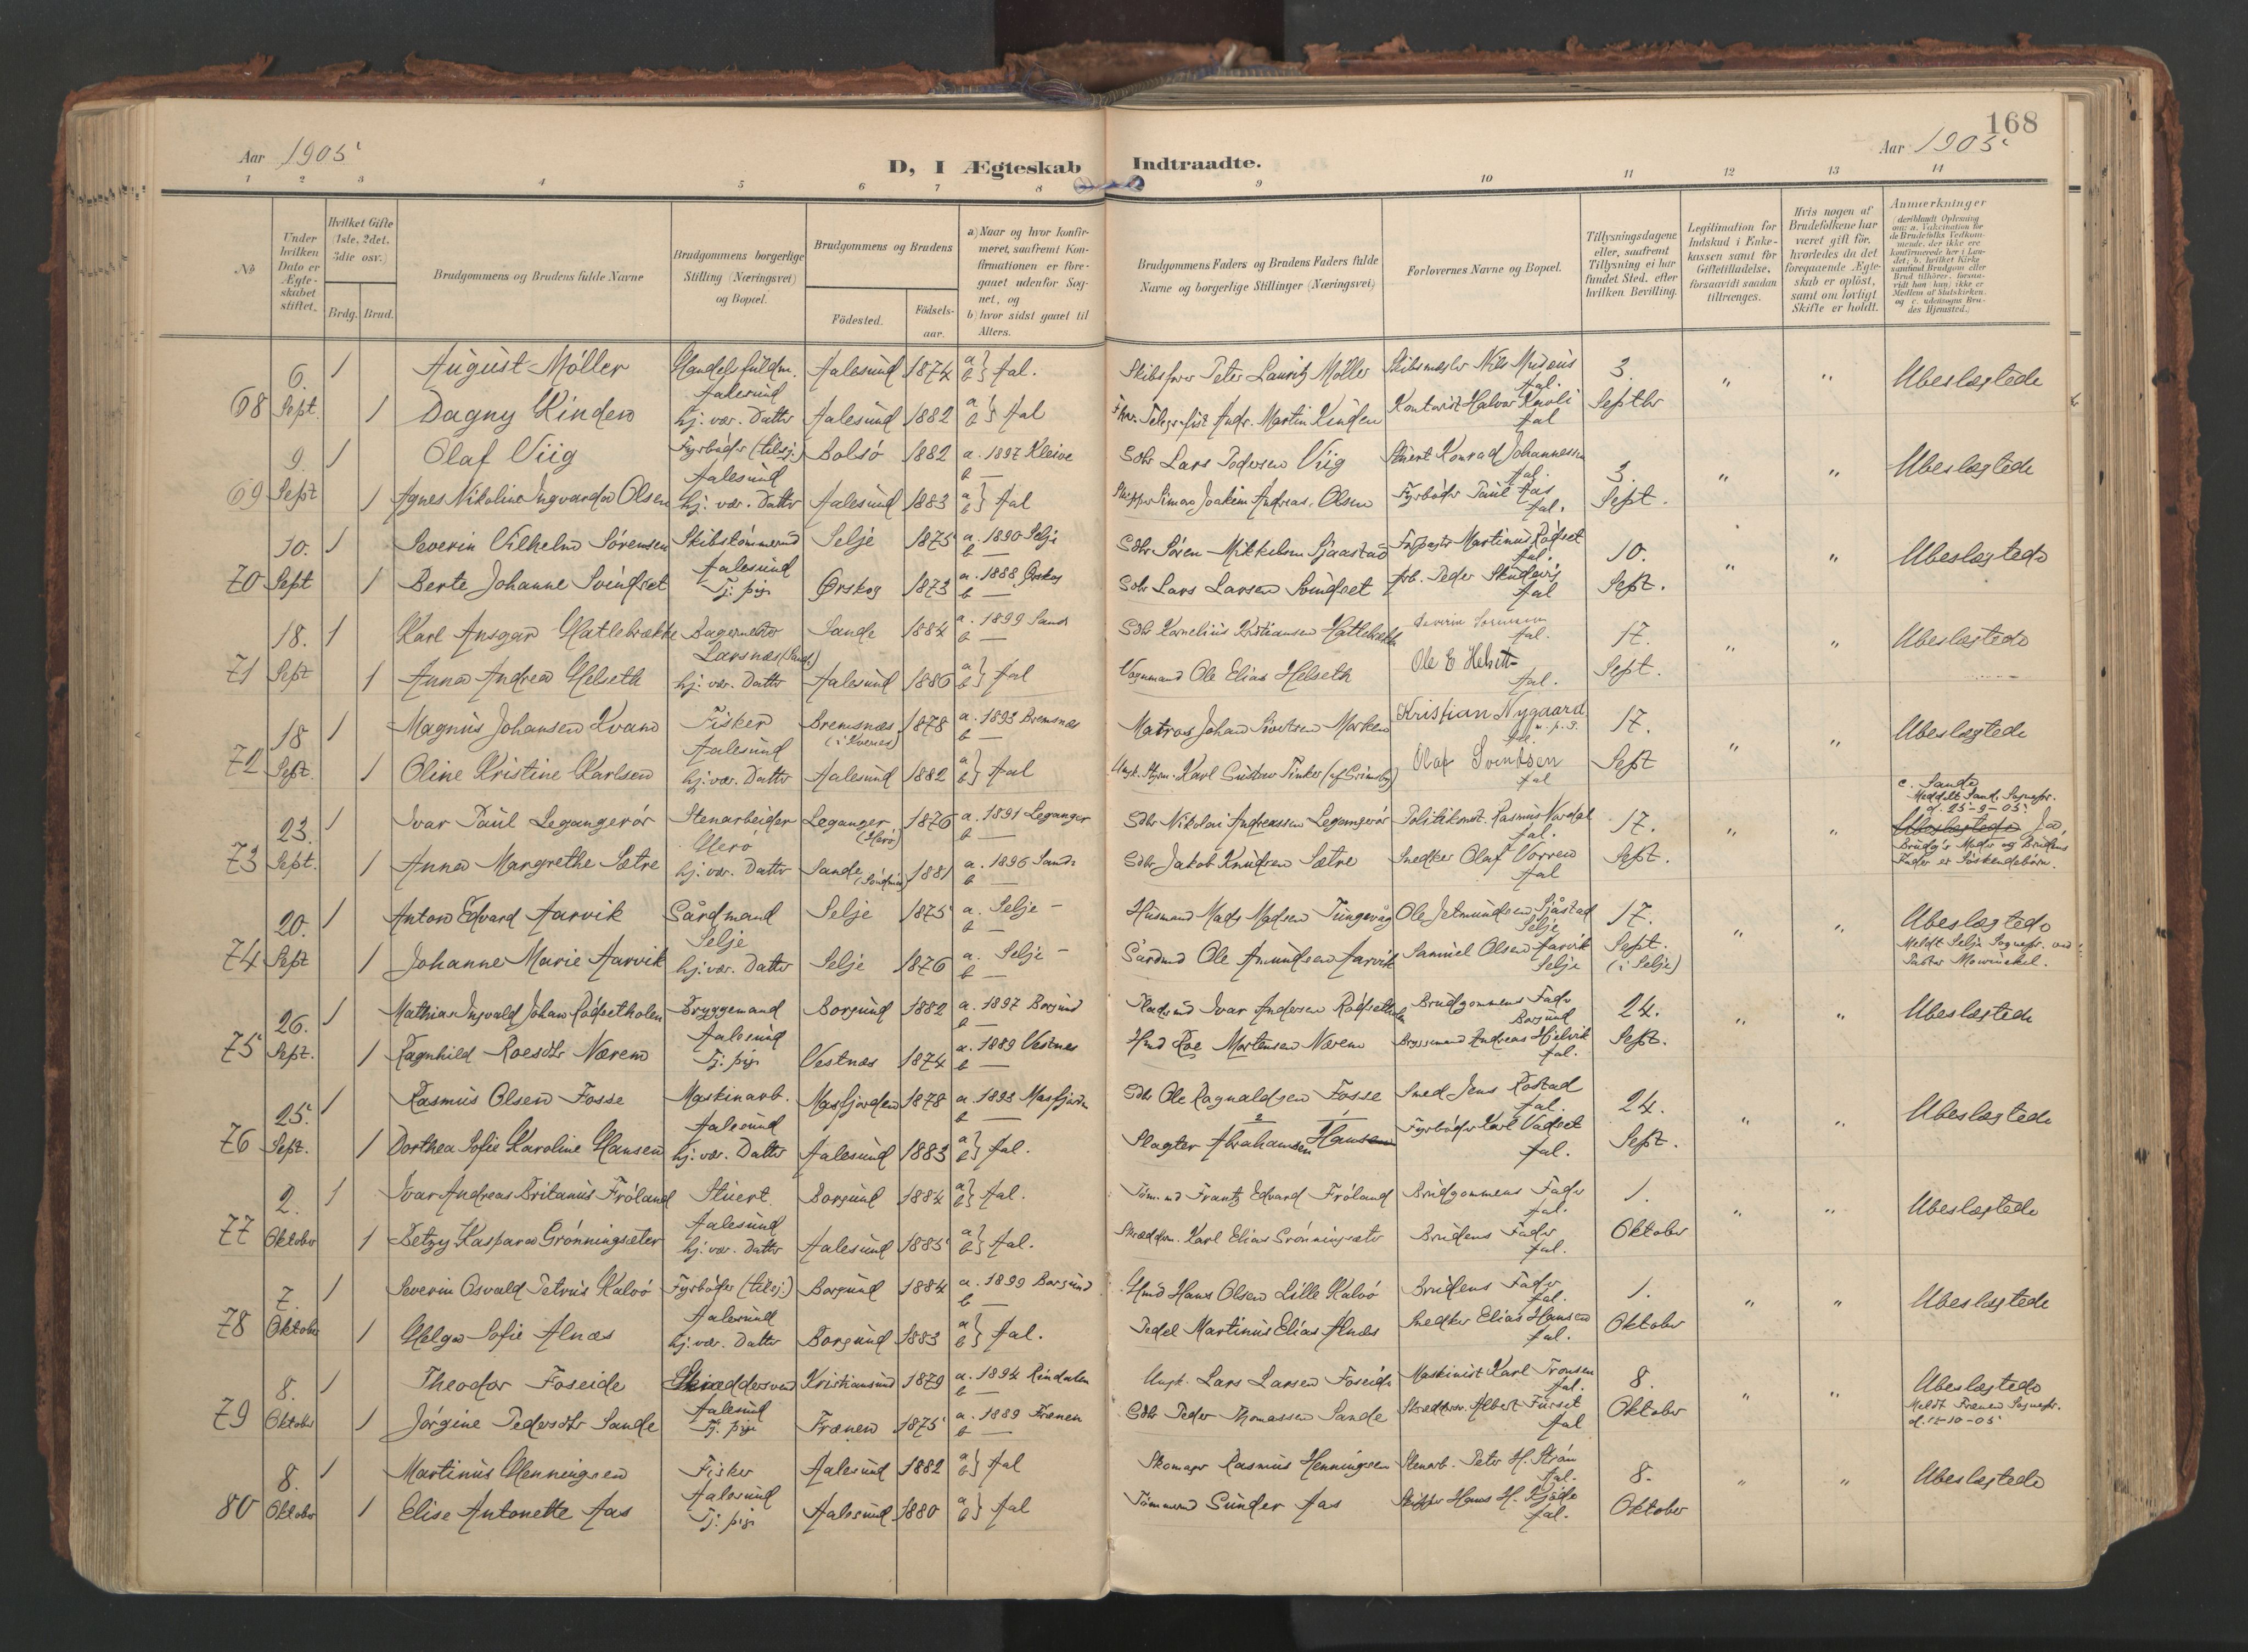 168
Aar 1905
D, I Ægteskab Indtraadte.
Aar 1905
1 2 3 4 5 6 7 8 9 10 11 12 13 14
No
Under hvilken Dato er Ægteskabet stiftet.
Hvilket Gifte (1ste, 2det, 3die osv.)
Brdg. Brud.
Brudgommens og Brudens fulde Navne
Brudgommens borgerlige Stilling (Næringsvei) og Bopæl.
Brudgommens og Brudens
Födested.
Födselsaar.
a) Naar og hvor konfirmeret, saafremt Konfirmationen er foregaaet udenfor Sognet, og
b) hvor sidst gaaet til Alters.
Brudgommens Faders og Brudens Faders fulde Navne og borgerlige Stillinger (Næringsvei)
Forlovernes Navne og Bopæl.
Tillysningsdagene eller, saafremt Tillysning ei har fundet Sted, efter hvilken Bevilling.
Legitimation for Indskud i Enkekassen samt for Giftetilladelse, forsaavidt saadan tiltrænges.
Hvis nogen af Brudefolkene har været gift för, hvorledes da det foregaaende Ægteskab er oplöst, samt om lovligt Skifte er holdt.
Anmærkninger
(deriblandt Oplysning om: a. Vakcination for de Brudefolks Vedkommende, der ikke ere konfirmerede her i Landet; b. hvilket Kirkesamfund Brudgom eller Brud tilhörer, forsaavidt han (hun) ikke er Medlem af Statskirken, og c. udensogns Brudes Hjemsted.)
68 6. Sept. 1 August Möller Handelsfuldm. Aalesund Aalesund 1874 a b } Aal. Skibsförer Peter Lauritz Möller Skibsmægler Nils Museus Aal. 3. Septbr " " Ubeslægtede
1 Dagny Kinden hj. vær. Datter Aalesund 1882 a b } Aal Telegrafist Andr. Martin Kinden Kontorist Halvor Kavli Aal
69 9. Sept 1 Olaf Viig Fyrböder (tilsj.) Aalesund Bolsö 1882 a. 1897 Kleive b — Gdbr Lars Pedersen Viig Stuert Konrad Johannessen Aal. 3. Sept. " " Ubeslægtede
1 Agnes Nikoline Ingvarda Olsen hj. vær. Datter Aalesund 1883 a b } Aal Skipper Simon Joakim Andreas Olsen Fyrböder Paul Aas Aal.
70 10. Sept 1 Severin Vilhelm Sörensen Skibstömmermd Aalesund Selje 1875 a. 1890 Selje b — Gdbr Sören Mikkelsen Sjaastad Martinus Rödset Aal. 10. Sept. " " Ubeslægtede
1 Berte Johanne Svindset Tj. pige Ørskog 1873 a. 1888 Ørskog b — Gdbr Lars Larsen Svindset Arb. Peder Aal
71 18. Sept 1 Karl Ansgar Hatlebrække Bagermester Larsnæs (Sande) Sande 1884 a. 1899 Sande b — Gdbr Kornelius Kristiansen Hatlebrække Severin Sörensen Aal. 17. Sept. " " Ubeslægtede
1 Anna Andrea Helseth hj. vær. Datter Aalesund 1886 a b } Aal Vognmand Ole Elias Helseth Ole E Helseth Aal.
72 18 Sept. 1 Magnus Johansen Kvam Fisker Aalesund Bremsnæs (i Kvernes) 1878 a. 1893 Bremsnæs b — Matros Johan Sivertsen Morken Kristian Nygaard m. p. P. Aal. 17. Sept " " Ubeslægtede
1 Oline Kristine Karlsen hj. vær. Datter Aalesund 1882 a b } Aal Ungk. Styrm. Karl Gustav Tinker (af Grimsby) Olaf Svendsen Aal
73 23. Sept. 1 Ivar Paul Legangerör Stenarbeider Herö Leganger (Herö) 1876 a. 1891 Leganger b — Gdbr Nikolai Andreassen Legangerör Politikonst. Rasmus Nordal Aal. 17. Sept. " " c. Sande Meddelt Sande Sognepr. d. 25-9-05. Ubeslægtede Ja, Brudg's Moder og Brudens Fader er Söskendebörn.
1 Anna Margrethe Sætre hj. vær. Datter Sande (Söndmör) 1881 a. 1896 Sande b — Gdbr Jakob Knudsen Sætre Snedker Olaf Vorren Aal
74 20. Sept 1 Anton Edvard Aarvik Gårdmand Selje Selje 1875 a. Selje - b — Husmand Mads Madsen Tungevåg Ole Jetmundsen Sjåstad Selje 17. Sept. (i Selje) " " Ubeslægtede Meldt Selje Sognepr. ved Pastor Mowinckel.
1 Johanne Marie Aarvik hj. vær. Datter Selje 1876 a. Selje - b — Gårdmd Ole Amundsen Aarvik Samuel Olsen Aarvik Selje
75 26. Sept. 1 Mathias Ingvald Johan Rödsetholen Bryggemand Aalesund Borgund 1882 a. 1897 Borgund b — Pladsmd Ivar Andersen Rödsetholen Brudgommens Fader Borgund 24. Sept. " " Ubeslægtede
1 Ragnhild Roesdtr Nærem Tj. pige Vestnæs 1874 a. 1889 Vestnes b — Hmd Roe Mortensen Nærem Bryggemand Andreas Hjelvik Aal.
76 25. Sept. 1 Rasmus Olsen Fosse Maskinarb. Aalesund Masfjorden 1878 a. 1893 Masfjorden b — Gdbr Ole Ragnaldsen Fosse Smed Jens Rostad Aal. 24. Sept. " " Ubeslægtede
1 Dorthea Sofie Karoline Hansen hj. vær. Datter Aalesund 1883 a b } Aal. Slagter Abrahamsen Hansen Fyrböder Karl Vadset Aal.
77 2. Oktober 1 Ivar Andreas Britanus Fröland Stuert Aalesund Borgund 1884 a b } Aal. Töm.md Frantz Edvard Fröland Brudgommens Fader Aal. 1. Oktober " " Ubeslægtede
1 Betzy Kaspara Grönningsæter hj. vær. Datter Aalesund 1885 a b } Aal. Skrædderm. Karl Elias Grönningsæter Brudens Fader Aal.
78 7. Oktober 1 Severin Osvald Petrus Kalvö Fyrböder (tilsj.) Aalesund Borgund 1884 a. 1899 Borgund b — Hmd Hans Olsen Lille Kalvö Brudens Fader Aal. 1. Oktober " " Ubeslægtede
1 Helga Sofie Alnæs hj. vær. Datter Borgund 1883 a b } Aal. Pedel Martinus Elias Alnæs Snedker Elias Hansen Aal.
79 8. Oktober 1 Theodor Foseide Skræddersvend Aalesund Kristiansund 1879 a. 1894 Rindalen b — Ungk. Lars Larsen Foseide Maskinist Karl Tronsen Aal. 8. Oktober " " Ubeslægtede Meldt Frænen Sognepr. d. 12-10-05
1 Jörgine Pedersdtr Sande Tj. pige Frænen 1875 a. 1889 Frænen b — Gdbr Peder Thomassen Sande Skræddersv. Albert Furset Aal
80 8. Oktober 1 Martinus Henningsen Fisker Aalesund Aalesund 1882 a b } Aal Skomager Rasmus Henningsen Stenarb. Peter H. Ström Aal. 8. Oktober " " Ubeslægtede
1 Elise Antonette Aas Tj. pige Aalesund 1880 a b } Aal Tömmermd Gunder Aas Skipper Hans H. Aal.